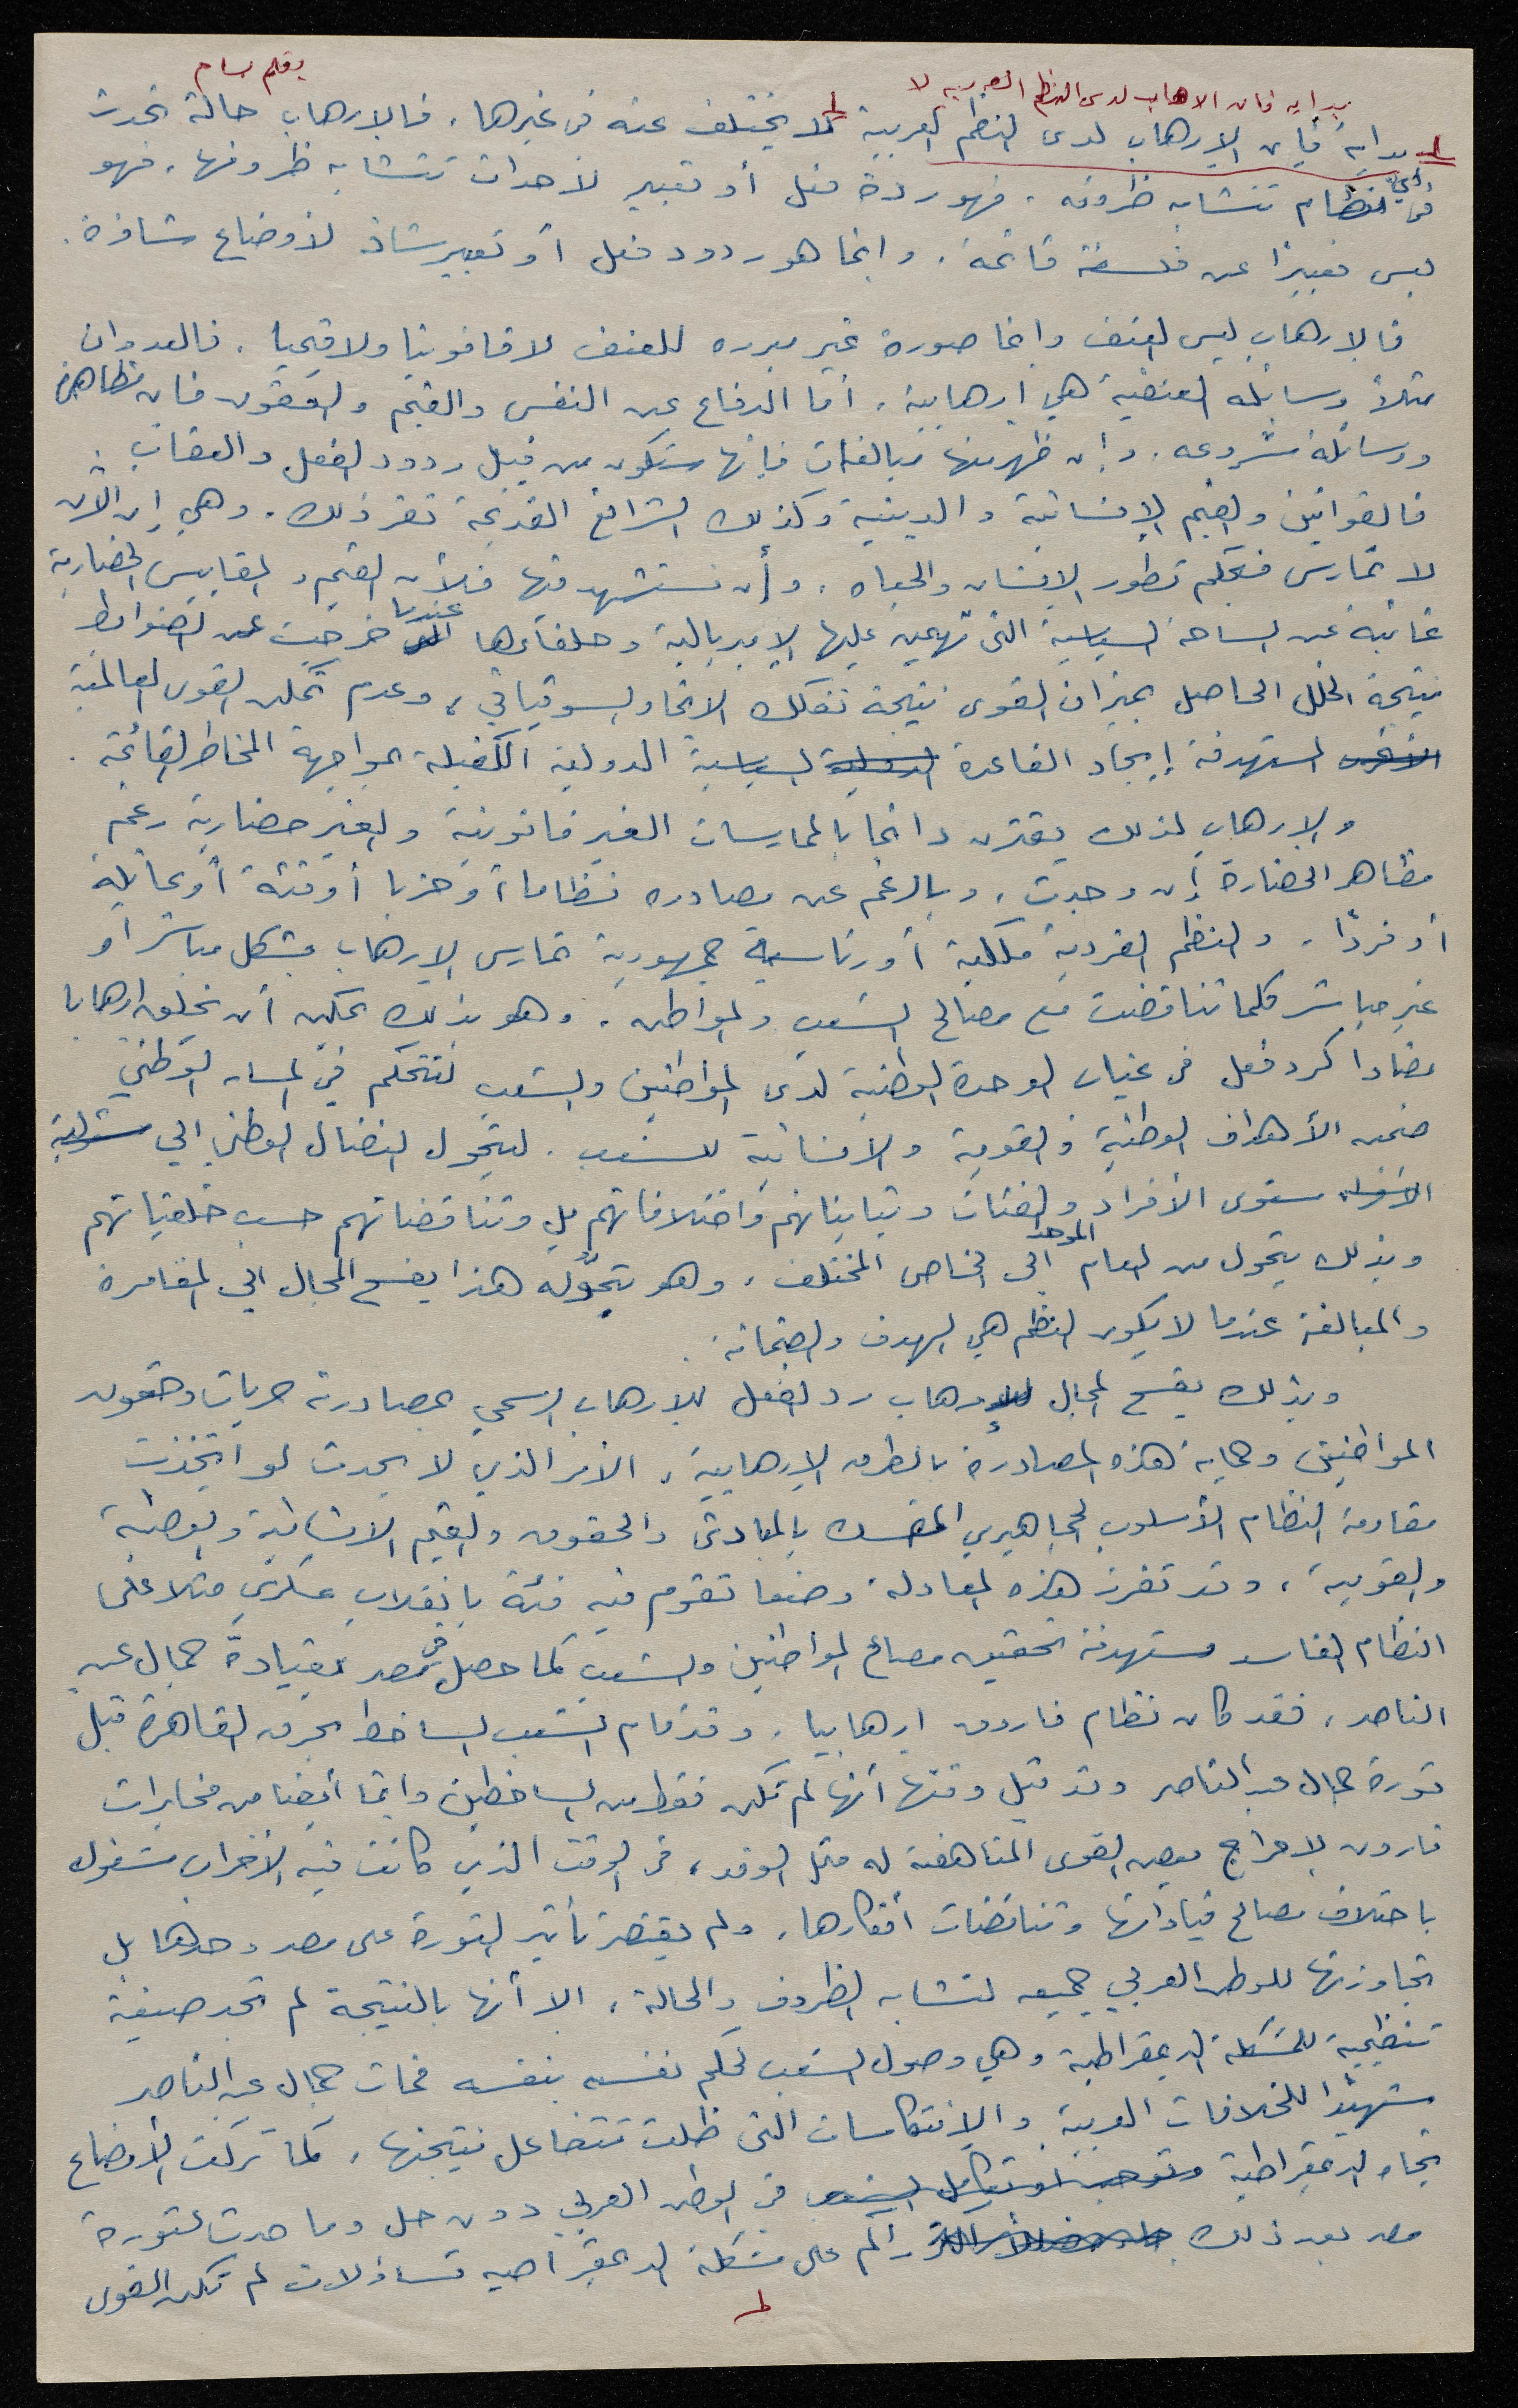 بقلم بسام
بداية فان الارهاب لدى النظم العربية لا
بداية فإن الإرهاب لدى النظم العربية لا يختلف عنه في غيرها. فالإرهاب حالة تحدث
في أي نظام تتشابه ظروفه. فهو ردة فعل أو تعبير لأحداث تتشابه ظروفها. فهو
ليس تعبيرًا عن فلسفة قائمة. وانما هو ردود فعل أو تعبير شاذ لأوضاع شاذة.
فالإرهاب ليس العنف وانما صورة غير مبررة للعنف لا قانونيا ولا قيميا. فالعدوان
مثلاً وسائله العنفية هي إرهابية. أما الدفاع عن النفس والقيم والحقوق فان مظاهره
ووسائله مشروعه. وإن ظهر منها مبالغات فإنها ستكون من قبيل ردود الفعل والعقاب.
فالقوانين والقيم الإنسانية والدينية وكذلك الشرائع القديمة تقر ذلك. وهي إن الآن
لا تمارس فبحكم تطور الإنسان والحياه. وأن نستشهد فيها فلأن القيم والمقاييس الحضارية
غائبة عن الساحة السياسية التي تهيمن عليها الإمبريالية وحلفاءها عندما خرجت عن الضوابط
نتيجة الخلل الحاصل بميزان القوى نتيجة تفكك الاتحاد السوفياتي، وعدم تمكن القوى العالمية
المستهدفة إيجاد القاعدة السياسية الدولية الكفيلة بمواجهة المخاطر القائمة.
والإرهاب لذلك يقترن دائما بالممارسات الغير قانونية والغير حضارية رغم
مظاهر الحضارة إن وجدت، وبالرغم عن مصادره نظاما أو حزبا أو فئة أو عائلة
أو فردًا. والنظم الفردية ملكية أو رئاسية جمهورية تمارس الإرهاب بشكل مباشر أو
غير مباشر كلما تناقضت مع مصالح الشعب والمواطن. وهو بذلك يمكن أن يخلق ارهابا
مضادا كرد فعل في غياب الوحدة الوطنية لدى المواطنين والشعب لتتحكم في المسار الوطني
ضمن الأهداف الوطنية والقومية والإنسانية للشعب. ليتحول النضال الوطني الى
مستوى الأفراد والفئات وتبايناتهم واختلافاتهم بل وتناقضاتهم حسب خلفياتهم
وبذلك يتحول من العام الموحد الى الخاص المختلف. وهو بتحوّله هذا يفسح المجال الى المغامرة
والمبالغة عندما لا يكون النظم هي الهدف والضمانة.
وبذلك يفسح المجال للإرهاب رد الفعل للإرهاب الرسمي بمصادرة حريات وحقوق
المواطنين وحماية هذه المصادرة بالطرق الإرهابية. الأمر الذي لا يحدث لو اتخذت
مقاومة النظام الأسلوب الجماهيري المتمسك بالمبادئ والحقوق والقيم الإنسانية والوطنية
والقومية. وقد تفرز هذه المعادلة وضعا تقوم فيه فئة بانقلاب عسكري مثلا على
النظام الفاسد مستهدفة تحقيق مصالح المواطنين والشعب كما حصل في مصر بقيادة جمال عبد
الناصر، فقد كان نظام فاروق ارهابيا. وقد قام الشعب الساخط بحرق القاهرة قبل
ثورة جمال عبد الناصر وقد قيل وقتها أنها لم تكن فقط من الساخطين وانما أيضا من مخابرات
فاروق لإحراج بعض القوى المناهضة له مثل الوفد، في الوقت الذي كانت فيه الأحزاب مشغولة
باختلاف مصالح قياداتها وتناقضات أفكارها. ولم يقتصر تأثير الثورة على مصر وحدها بل
تجاوزتها للوطن العربي جميعه لتشابه الظروف والحالة، الا أنها بالنتيجة لم تجد صيغة
تنظيمية للمشكلة الديمقراطية وهي وصول الشعب لحكم نفسه بنفسه فمات جمال عبد الناصر
شهيدًا للخلافات العربية والإنتكاسات التي ظلت تتفاعل نتيجتها. كما تركت الأوضاع
تجاه الديمقراطية في الوطن العربي دون حل وما حدث لثورة
مصر بعد ذلك على مشكلة الديمقراطيه تساؤلات لم تكن القوى